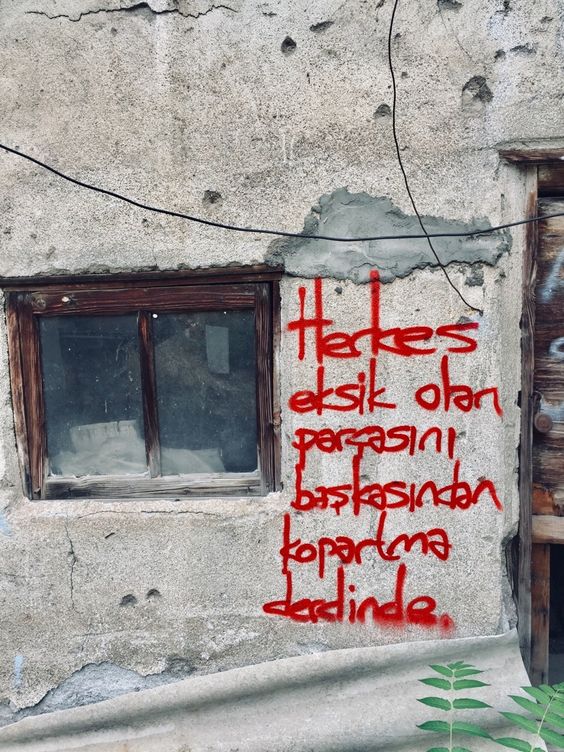 Herkes
eksik olan
parçasını
başkasından
kopartma
derdinde.